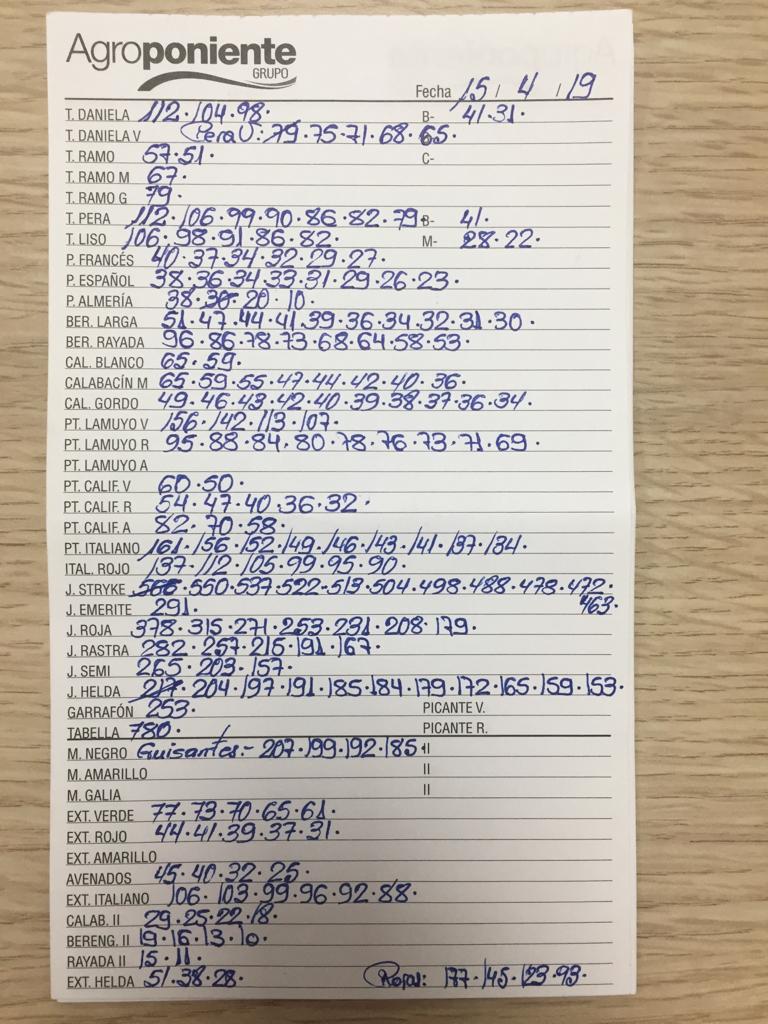 Agroponiente
GRUPO
Fecha 15 / 4 / 19
T. DANIELA 112. 104. 98. B- 41. 31.
T. DANIELA V Pera V: 79. 75. 71. 68. 65.
T. RAMO 57. 51. C-
T. RAMO M 67.
T. RAMO G 79.
T. PERA 112. 106. 99. 90. 86. 82. 79. B- 41.
T. LISO 106. 98. 91. 86. 82. M- 28. 22.
P. FRANCÉS 40. 37. 34. 32. 29. 27.
P. ESPAÑOL 38. 36. 34. 33. 31. 29. 26. 23.
P. ALMERÍA 38. 30. 20. 10.
BER. LARGA 51. 47. 44. 41. 39. 36. 34. 32. 31. 30.
BER. RAYADA 96. 86. 78. 73. 68. 64. 58. 53.
CAL. BLANCO 65. 59.
CALABACÍN M 65. 59. 55. 47. 44. 42. 40. 36.
CAL. GORDO 49. 46. 43. 42. 40. 39. 38. 37. 36. 34.
PT. LAMUYO V 156. 142. 113. 107.
PT. LAMUYO R 95. 88. 84. 80. 78. 76. 73. 71. 69.
PT. LAMUYO A
PT. CALIF. V 60. 50.
PT. CALIF. R 54. 47. 40. 36. 32.
PT. CALIF. A 82. 70. 58.
PT. ITALIANO 161. 156. 152. 149. 146. 143. 141. 137. 134.
ITAL. ROJO 137. 112. 105. 99. 95. 90.
J. STRYKE 550. 537. 522. 513. 504. 498. 488. 478. 472.
J. EMERITE 291. 463.
J. ROJA 378. 315. 271. 253. 231. 208. 179.
J. RASTRA 282. 257. 215. 191. 167.
J. SEMI 265. 203. 157.
J. HELDA 217. 204. 197. 191. 185. 184. 179. 172. 165. 159. 153.
GARRAFÓN 253. PICANTE V.
TABELLA 780. PICANTE R.
M. NEGRO Guisantes.- 207. 199. 192. 185. II
M. AMARILLO II
M. GALIA II
EXT. VERDE 77. 73. 70. 65. 61.
EXT. ROJO 44. 41. 39. 37. 31.
EXT. AMARILLO
AVENADOS 45. 40. 32. 25.
EXT. ITALIANO 106. 103. 99. 96. 92. 88.
CALAB. II 29. 25. 22. 18.
BERENG. II 19. 16. 13. 10.
RAYADA II 15. 11.
EXT. HELDA 51. 38. 28. Rojas: 177. 145. 123. 93.